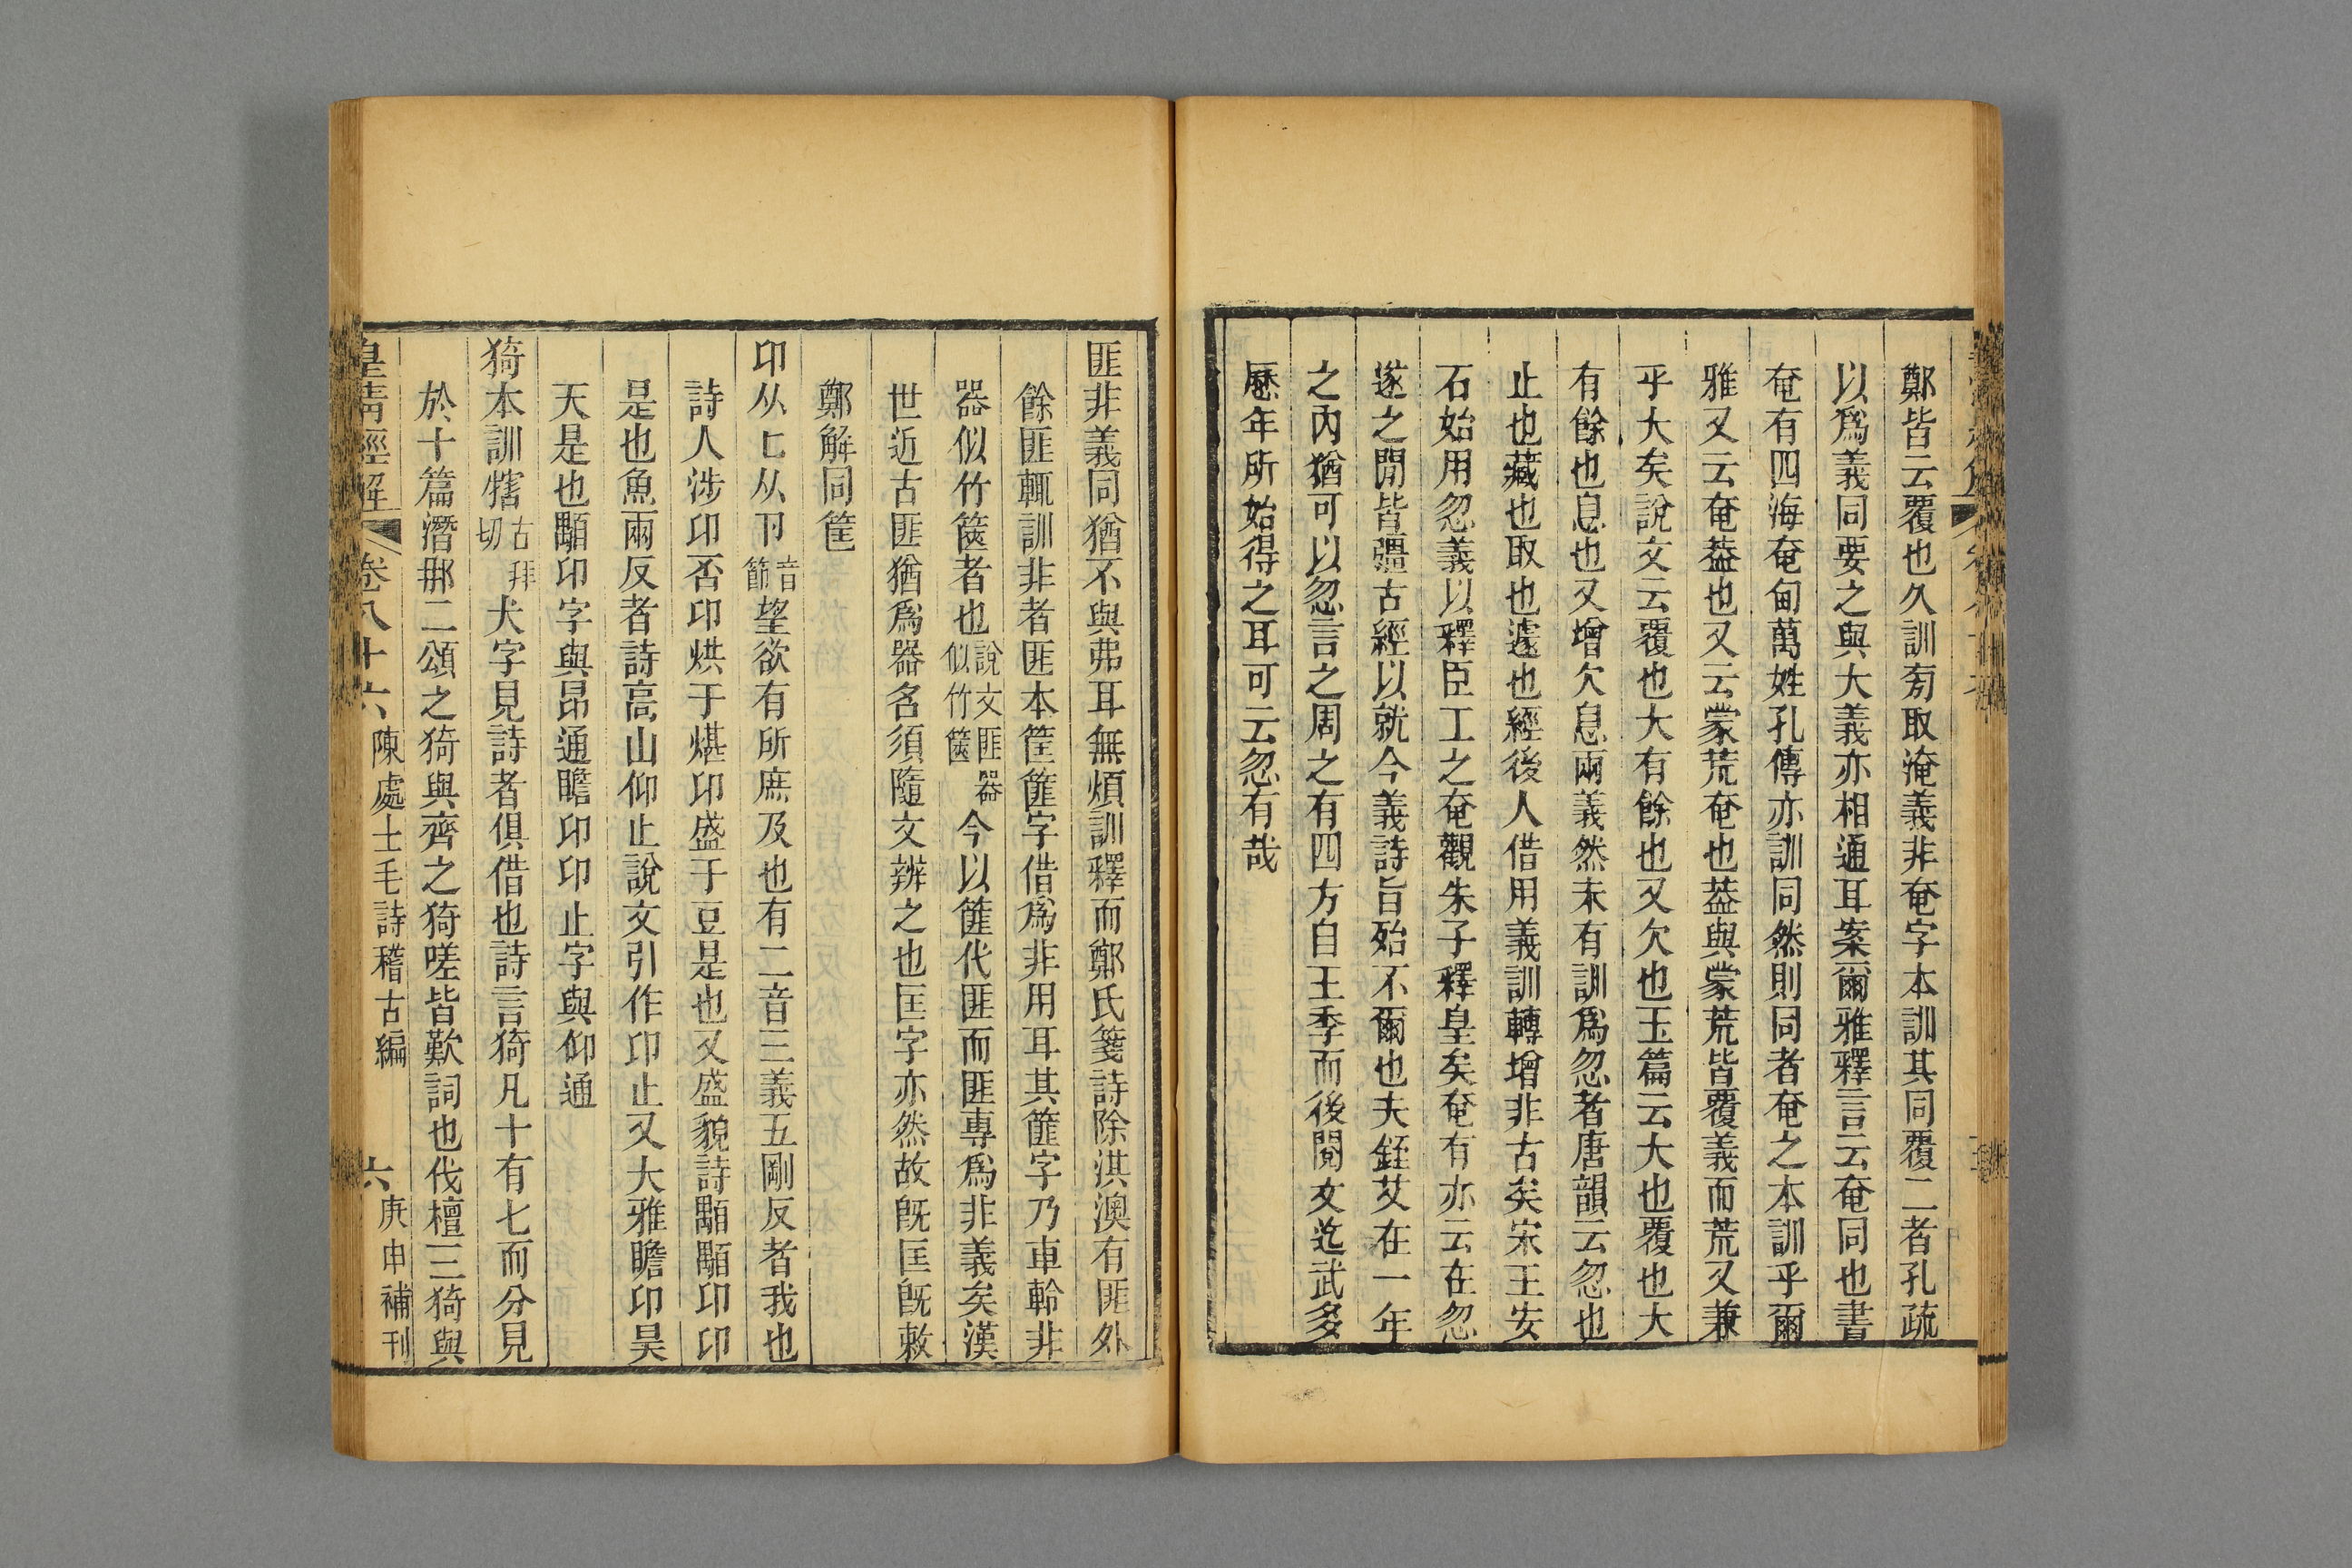 鄭皆云覆也久訓㫄取淹義非奄字本訓其同覆二者孔疏
以爲義同要之與大義亦相通耳案爾雅釋言云奄同也書
奄有四海奄甸萬姓孔傳亦訓同然則同者奄之本訓乎爾
雅又云奄葢也又云蒙荒奄也葢與蒙荒皆覆義而荒又兼
乎大矣說文云覆也大有餘也又欠也玉篇云大也覆也大
有餘也息也又增欠息兩義然未有訓爲忽者唐韻云忽也
止也藏也取也遽也經後人借用義訓轉增非古矣宋王安
石始用忽義以釋臣工之奄觀朱子釋皇矣奄有亦云在忽
遂之閒皆彊古經以就今義詩旨殆不爾也夫銍艾在一年
之內猶可以忽言之周之有四方自王季而後閱文迄武多
歷年所始得之耳可云忽有哉
匪非義同猶不與弗耳無煩訓釋而鄭氏箋詩除淇澳有匪外
餘匪輒訓非者匪本筐篚字借爲非用耳其篚字乃車軨非
器似竹篋者也說文匪器似竹篋今以篚代匪而匪專爲非義矣漢
世近古匪猶爲器名須隨文辨之也匡字亦然故旣匡旣敕
鄭解同筐
卬从匕从卪音節望欲有所庶及也有二音三義五剛反者我也
詩人涉卬否卬烘于煁卬盛于豆是也又盛貌詩顒顒卬卬
是也魚兩反者詩高山仰止說文引作卬止又大雅瞻卬昊
天是也顒卬字與昂通瞻卬卬止字與仰通
猗本訓犗古拜切犬字見詩者俱借也詩言猗凡十有七而分見
於十篇潛那二頌之猗與齊之猗嗟皆歎詞也伐檀三猗與
皇清經解 卷八十六 陳處士毛詩稽古編 六 庚申補刊